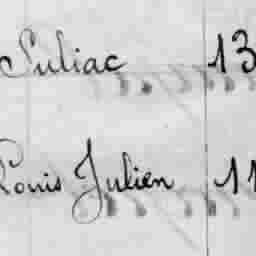 Suliac 13
Louis Julien 11